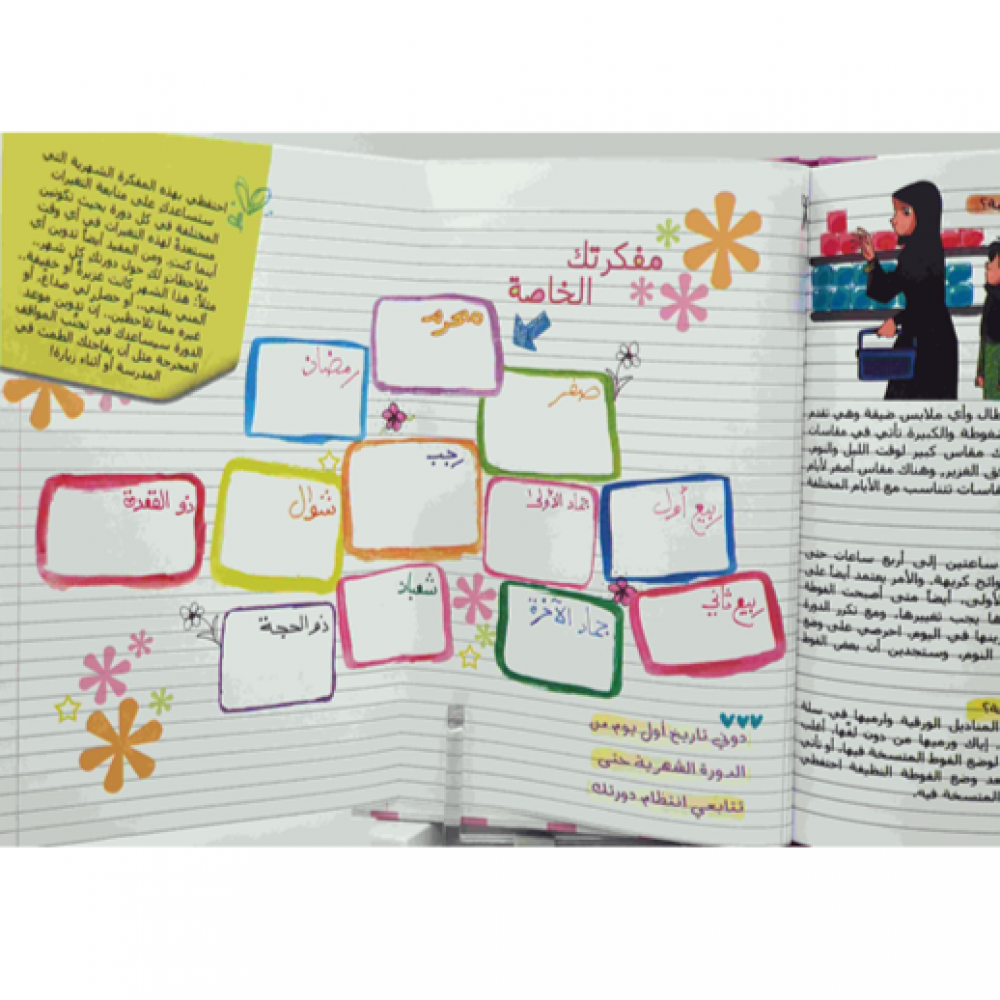 مفكرتك
الخاصة
محرم
صفر
ربيع أول
ربيع ثاني
جماد الأولى
جماد الآخرة
رجب
شعبان
رمضان
شوال
ذو القعدة
ذو الحجة
دوني تاريخ أول يوم من
الدورة الشهرية حتى
تتابعي انتظام دورتك
احتفظي بهذه المفكرة الشهرية التي
ستساعدك على متابعة التغيرات
المختلفة في كل دورة بحيث تكونين
مستعدة لهذه التغيرات في أي وقت
أينما كنت. ومن المفيد أيضاً تدوين أي
ملاحظاتٍ لك حول دورتك كل شهر..
مثلاً: هذا الشهر كانت غزيرة أو خفيفة..
ألمني بطني.. أو حصل لي صداع، أو
غيره مما تلاحظين.. إن تدوين موعد
الدورة سيساعدك في تجنب المواقف
المحرجة مثل أن يفاجئك الطمث في
المدرسة أو أثناء زيارة!
وأي ملابس ضيقة وهي تقدم
والكبيرة. تأتي في مقاسات
مقاس كبير لوقت الليل والنوم،
الغزير، وهناك مقاس أصغر لأيام
تتناسب مع الأيام المختلفة
ساعتين إلى أربع ساعات حتى
كريهة. والأمر يعتمد أيضاً على
أيضاً متى أصبحت الفوطة
يجب تغييرها. ومع تكرر الدورة
في اليوم. احرصي على وضع
النوم. وستجدين أن بعض الفوط
المناديل الورقية وارميها في سلة
إياك ورميها من دون لفها. أغلب
لوضع الفوط المتسخة فيها، أو تأتي
وضع الفوطة النظيفة احتفظي
المتسخة فيه.